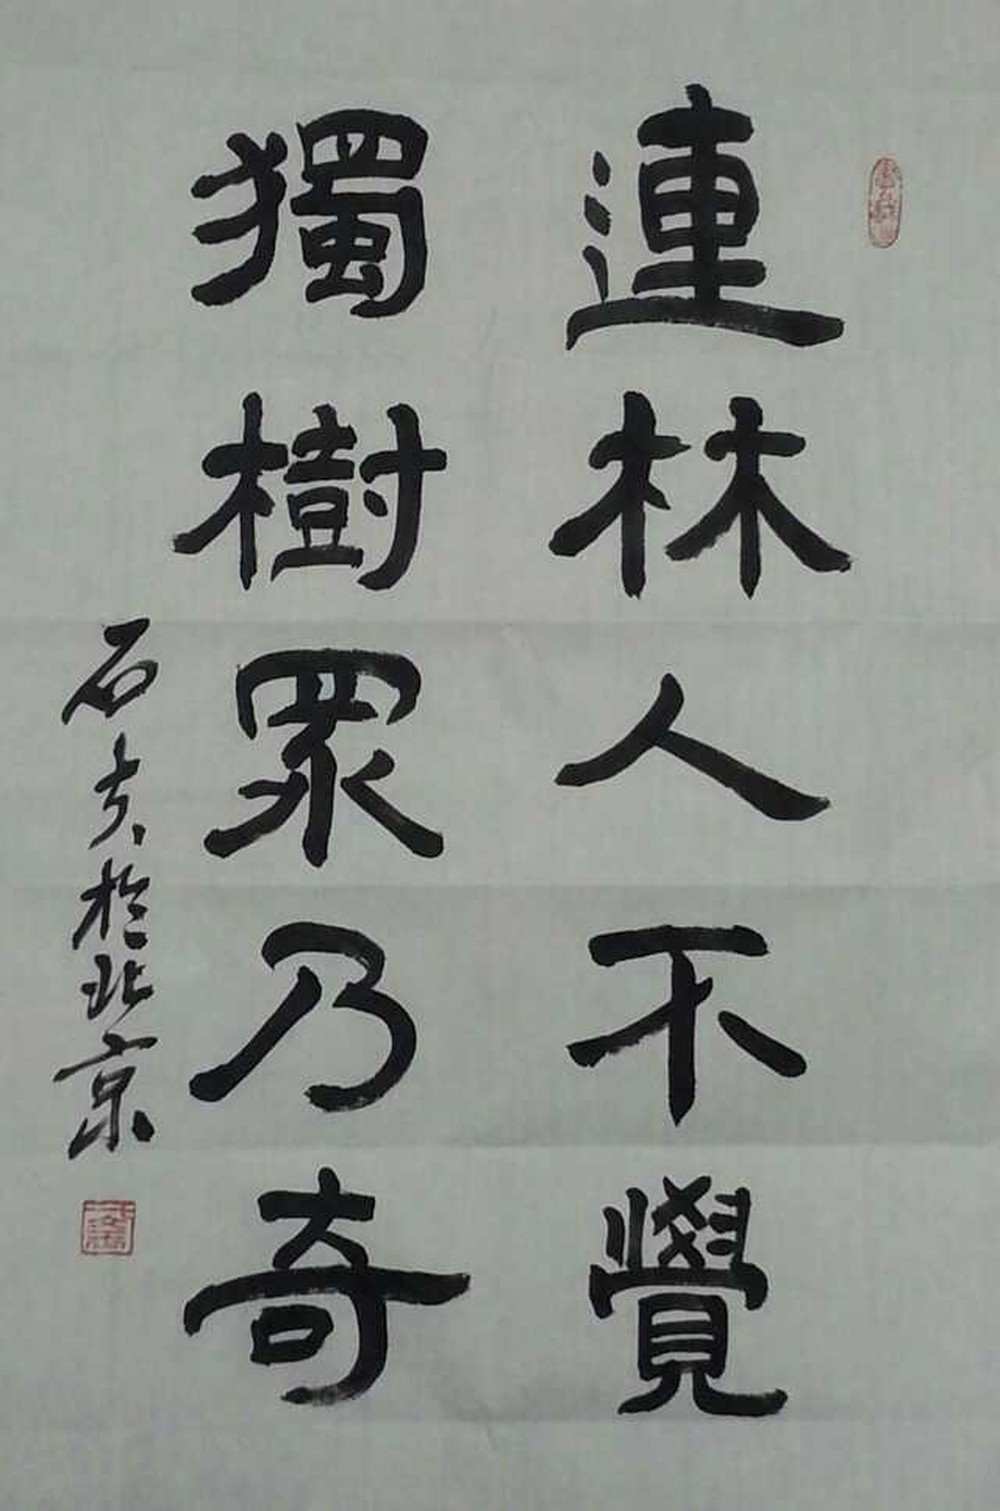 連林人不覺
獨樹眾乃奇
石夫於北京